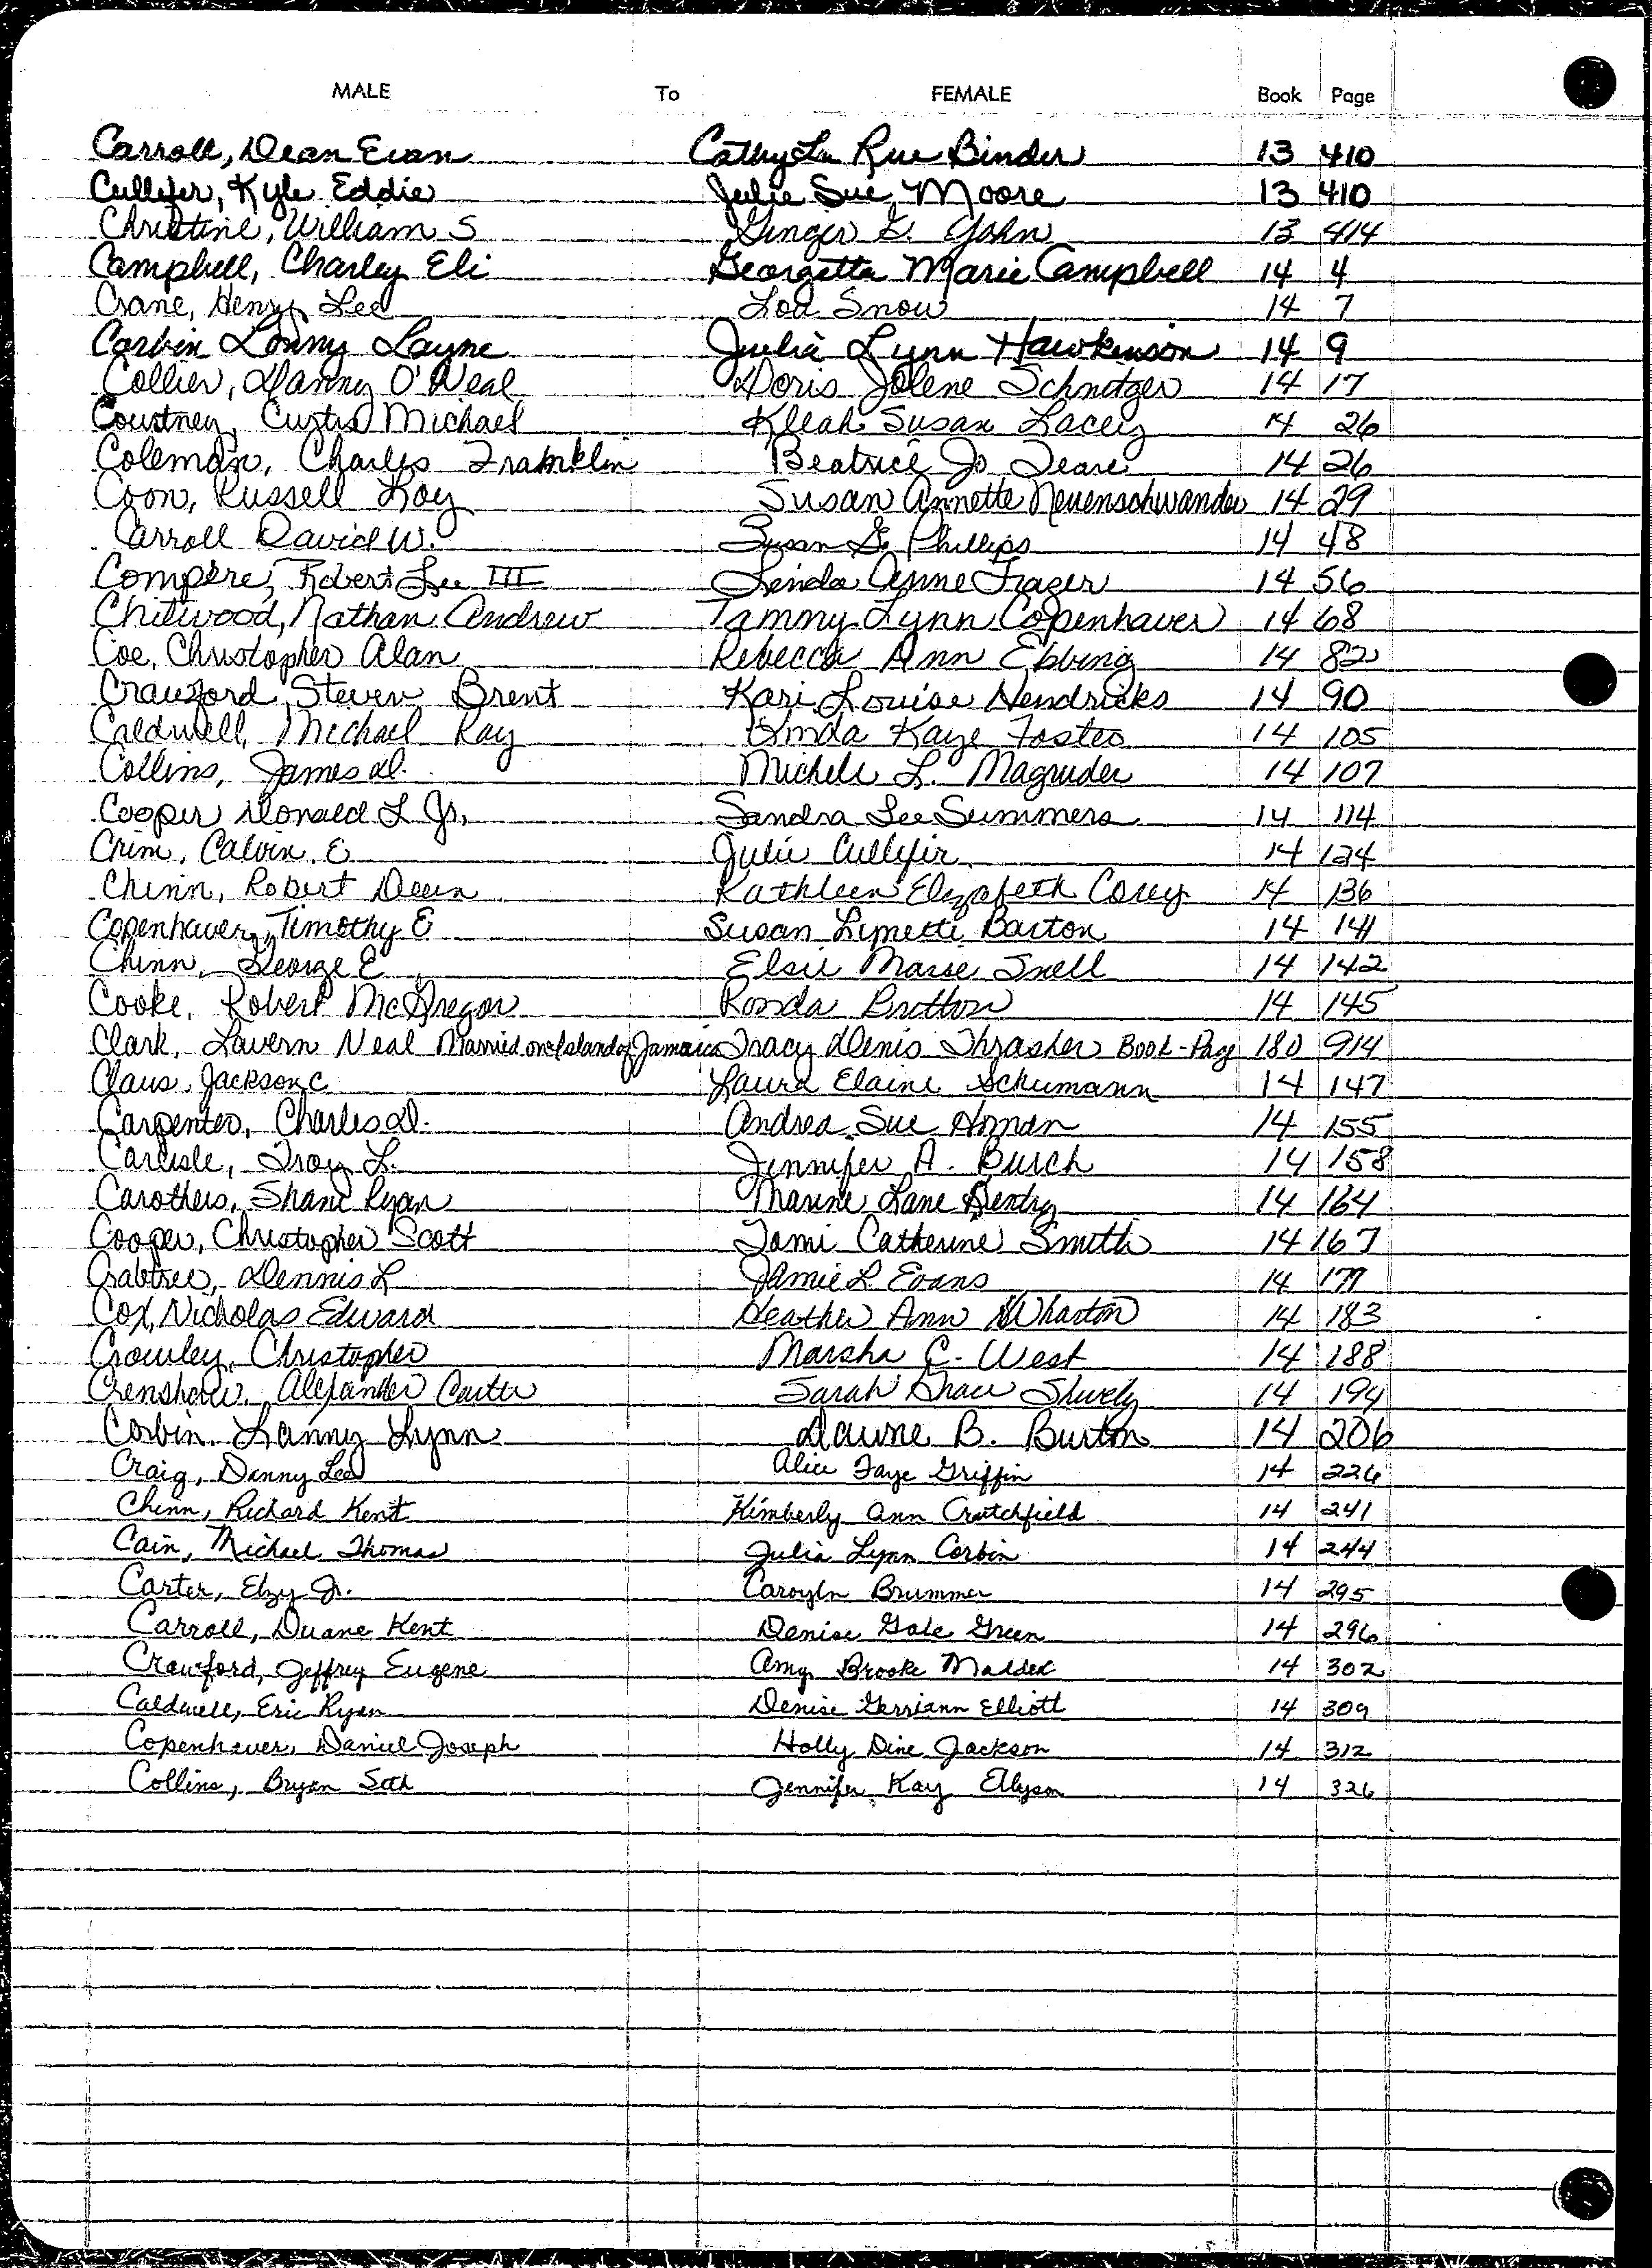 MALE To FEMALE Book Page
Carroll, Dean Evan Cathy La Rue Binder 13 410
Cullifer, Kyle Eddie Julie Sue Moore 13 410
Christine, William S Ginger K. John 13 414
Campbell, Charley Eli Georgetta Marie Campbell 14 4
Crane, Henry Lee Loa Snow 14 7
Corbin Lonny Layne Julia Lynn Hawkinson 14 9
Collier, Danny O'Neal Doris Jolene Schnetzer 14 17
Courtney, Curtis Michael Kleah Susan Lacey 14 26
Coleman, Charles Franklin Beatrice Jo Teare 14 26
Coon, Russell Roy Susan Annette Neuenschwander 14 29
Carroll David W. Susan G. Phillips 14 48
Compere, Robert Lee III Linda Anne Frazer 14 56
Chitwood, Nathan Andrew Tammy Lynn Copenhaver 14 68
Coe, Christopher Alan Rebecca Ann Ebbing 14 82
Crawford, Steven Brent Kari Louise Hendricks 14 90
Caldwell, Michael Ray Linda Kaye Foster 14 105
Collins, James D. Michele L. Magruder 14 107
Cooper Donald L Jr. Sandra Lee Summers 14 114
Crim, Calvin E Julie Cullifer 14 124
Chinn, Robert Deen Kathleen Elizabeth Corey 14 136
Copenhaver, Timothy E Susan Lynette Barton 14 141
Chinn, George E Elsie Marie Snell 14 142
Cooke, Robert McGregor Ronda Britton 14 145
Clark, Lavern Neal Married on Island of Jamaica Tracy Denis Thrasher Book-Page 180 914
Claus, Jackson C Laura Elaine Schumann 14 147
Carpenter, Charles D. Andrea Sue Homan 14 155
Carlisle, Troy L. Jennifer A. Burch 14 158
Carothers, Shane Ryan Maxine Lane Gentry 14 164
Cooper, Christopher Scott Tomi Catherine Smith 14 167
Crabtree, Dennis L Jamie L. Evans 14 179
Cox, Nicholas Edward Heather Ann Wharton 14 183
Crowley, Christopher Marsha C. West 14 188
Crenshaw, Alexander Carter Sarah Grace Shively 14 194
Corbin, Lanny Lynn Dawne B. Burton 14 206
Craig, Danny Lee Alice Faye Griffin 14 226
Chinn, Richard Kent Kimberly Ann Crutchfield 14 241
Cain, Michael Thomas Julia Lynn Corbin 14 244
Carter, Elzy Jr. Caroyln Brummer 14 295
Carroll, Duane Kent Denise Gale Green 14 296
Crawford, Jeffrey Eugene Amy Brooke Maddex 14 302
Caldwell, Eric Ryan Denise Gerriann Elliott 14 309
Copenhaver, Daniel Joseph Holly Dine Jackson 14 312
Collins, Bryan Seth Jennifer Kay Ellyson 14 326